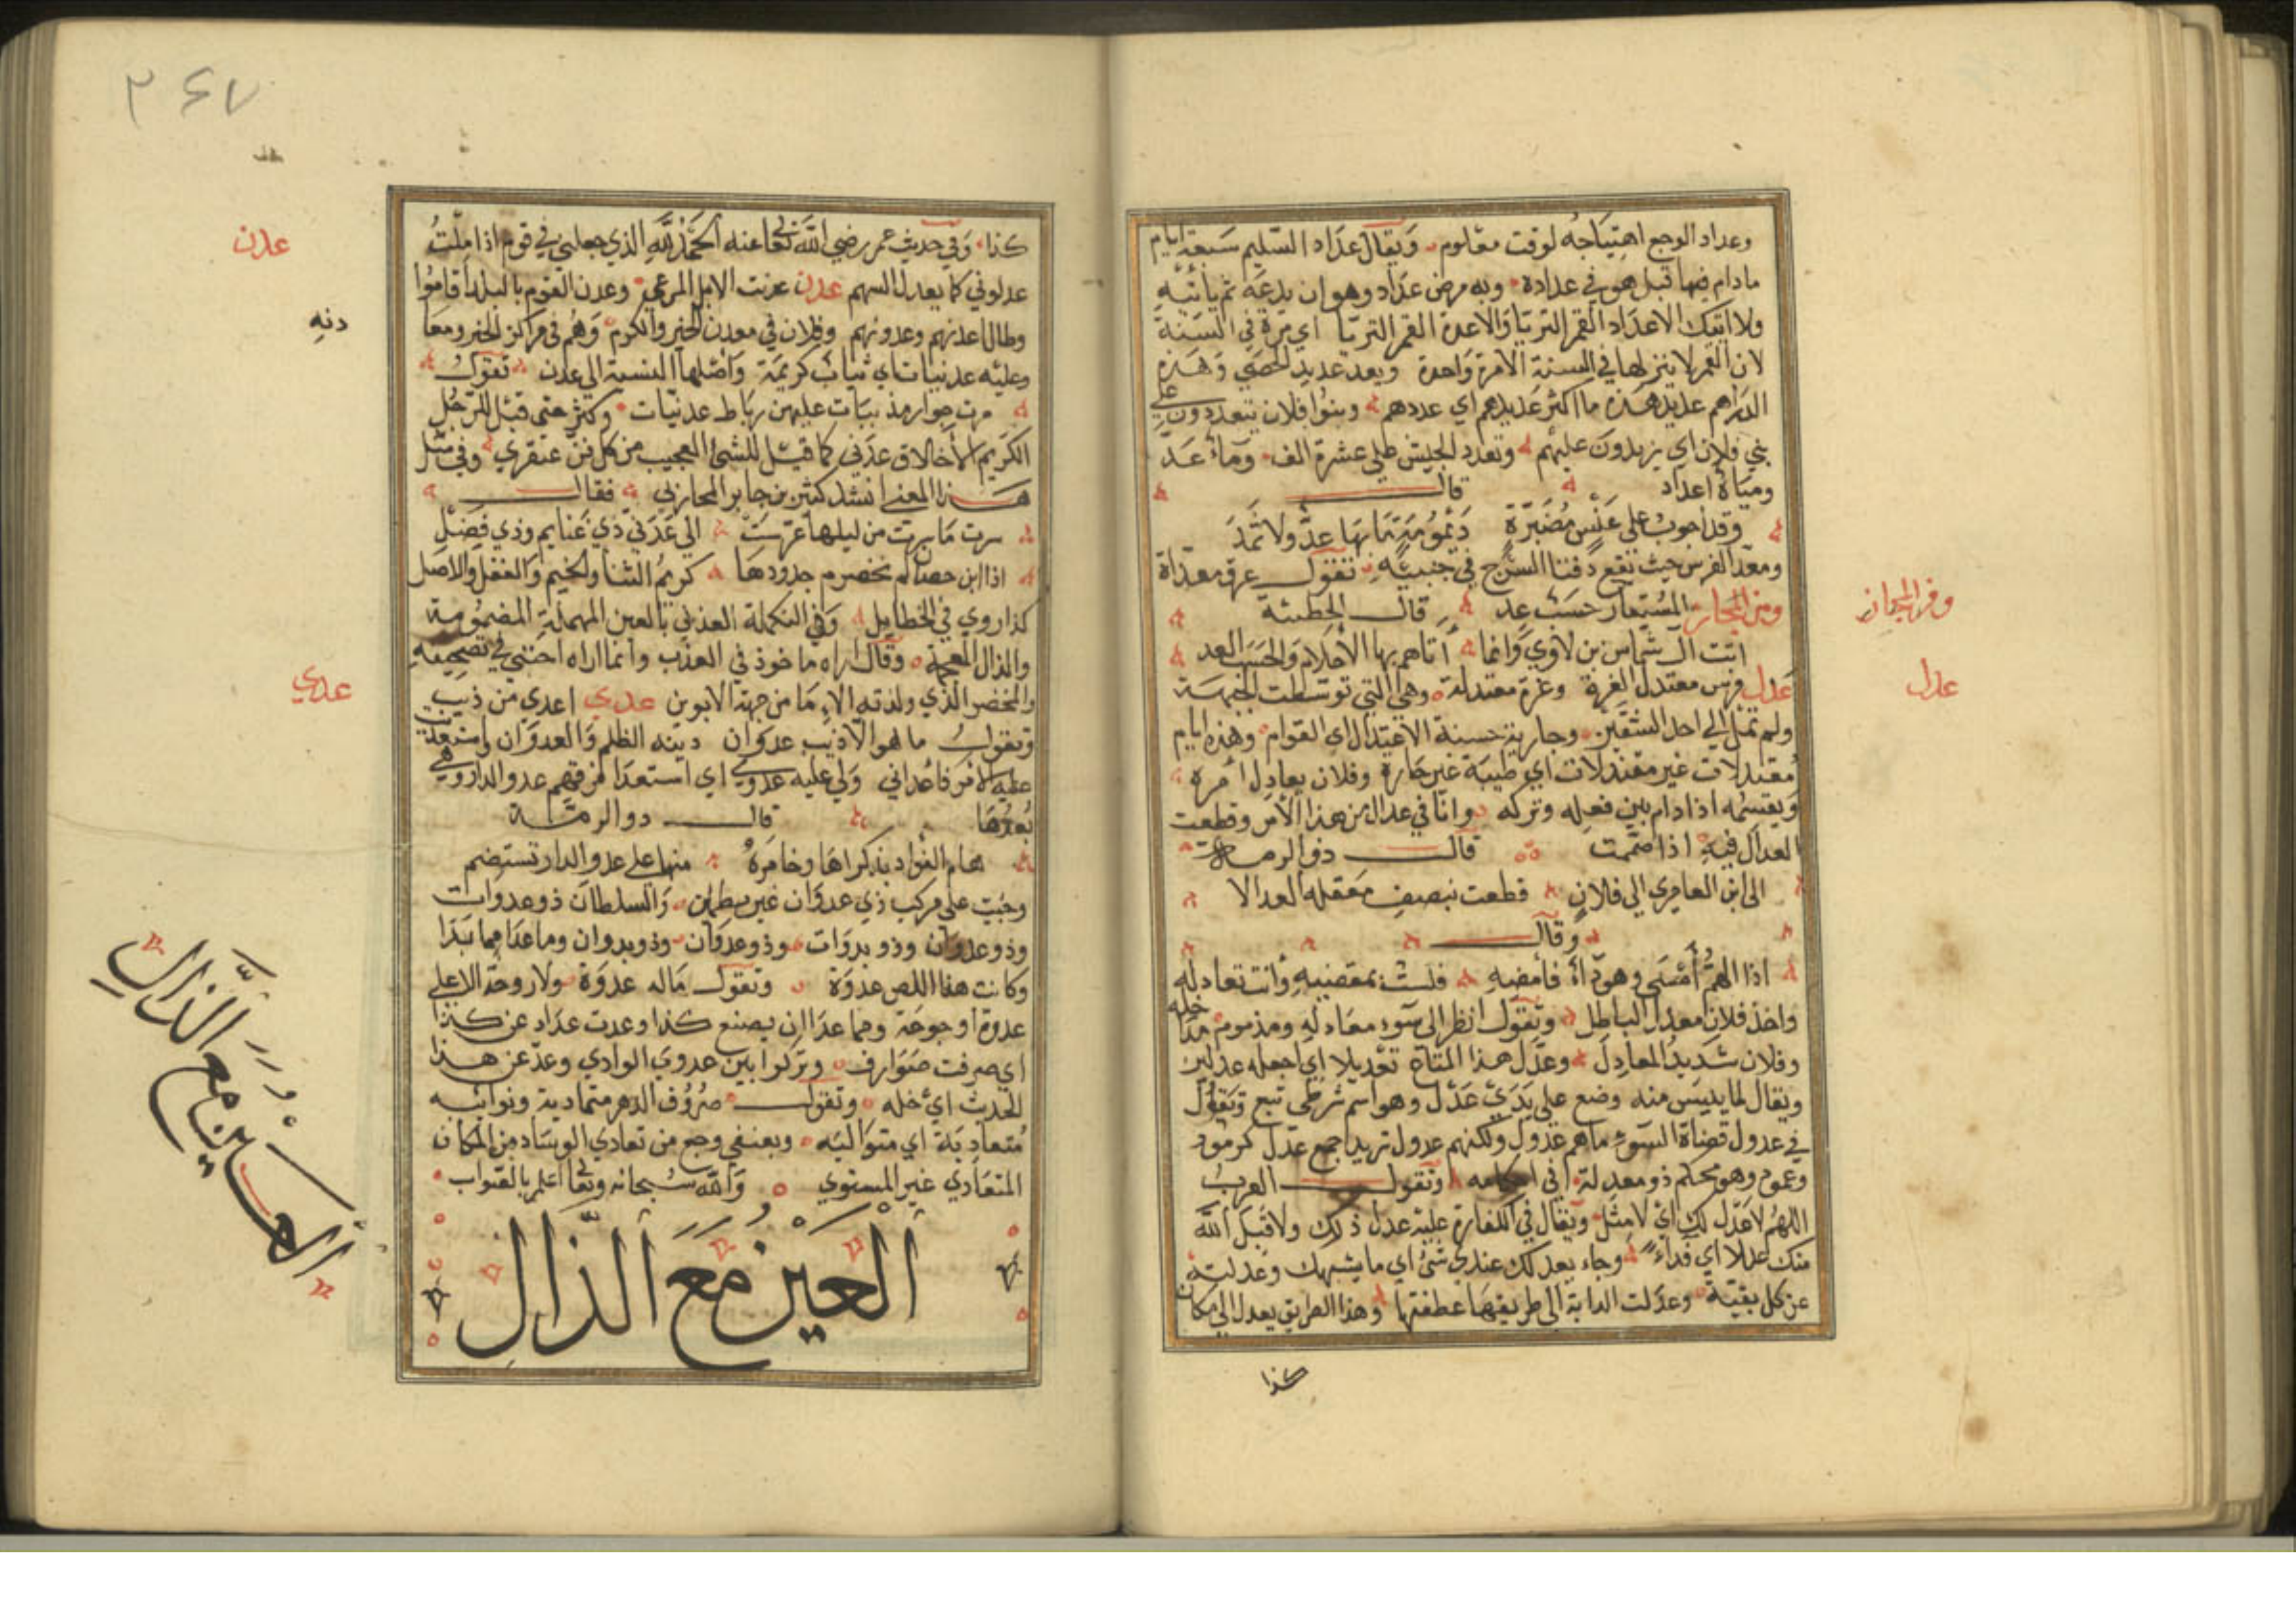 وعداد الوجع اهتياجه لوقت معلوم ويقال عداد السليم سبعة ايام
مادام فيها قيل هو في عداده وبه مرض عداد وهو ان يدعه ثم ياتيه
ولا اتيك الا عداد القمر الثريا والا عدة القمر الثريا اي مرة في السنة
لان القمر لا ينزلها في السنة الا مرة واحدة ويعد عديد الحصى وهذه
الدراهم عديد هذه ما اكثر عديدهم اي عددهم وبنوا فلان يتعددون على
بني فلان اي يزيدون عليهم وتعدد الجيش على عشرة الف وماء عد
ومياه اعداد قال
وقد اجوب على عنس مضبرة ديمومة ما بها عد ولا ثمد
ومعد الفرس حيث تقع دفتا السرج في جنبيه تقول عرق معداه
ومن المجاز المستعار حسب عد قال الحطيئة
اتت آل شماس بن لاوي وانما أتاهم بها الأحلام والحسب العد
عدل فرس معتدل الغرة وغرة معتدلة وهي التي توسطت الجبهة
ولم تمل الى احد الشقين وجارية حسنة الاعتدال اي القوام وهذه ايام
معتدلات غير معتذلات اي طيبة غير حارة وفلان يعادل أمره
ويقسمه اذا دام بين فعله وتركه وانا في عدال من هذا الأمر وقطعت
العدال فيه اذا صممت قال ذو الرمة
الى ابن العامري الى فلان قطعت بنصف معقله العدالا
وقال
اذا الهم أمسى وهو داء فأمضه فلست بممضيه وأنت تعادله
واخذ فلان معدل الباطل وتقول انظر الى سوء معادله ومذموم مداخله
وفلان شديد المعادل وعدل هذا المتاع تعديلا اي اجعله عدلين
ويقال لما يئس منه وضع على يدي عدل وهو اسم شرطي تبع وتقول
في عدول قضاة السوء ما هم عدول ولكنهم عدول تريد جمع عدل كرمود
وعموم وهو محكم ذو معدلة في احكامه وتقول العرب
اللهم لا عدل لك اي لا مثل ويقال في الكفارة عليه عدل ذلك ولا قبل الله
منك عدلا اي فداء وجاء بعد لك عندي شئ اي ما يشبهك وعدلته
عن كل بقية وعدلت الدابة الى طريقها عطفتها وهذا الطريق يعدل الى مكان
كذا
ومن المجاز
عدل
كذا وفي حديث عمر رضي الله تعا عنه الحمد لله الذي جعلني في قوم اذا ملت
عدلوني كما يعدل السهم عدن عدنت الابل المرعى وعدن القوم بالبلد أقاموا
وطال عدنهم وعدونهم وفلان في معدن الخير والكرم وهم في مراكز الخير ومعا
دنه
وعليه عدنيات اي ثياب كريمة وأصلها النسبة الى عدن تقول
مرت جوار مذ بيات عليهن رباط عدنيات وكثر حتى قيل للرجل
الكريم الأخلاق عدني كما قيل للشئ العجيب من كل فن عبقري وفي مثل
هذا المعنى انشد كثير بن جابر المحاربي فقال
سرت ما سرت من ليلها ثم عرست الى عدني ذي غنايم وذي فضل
اذا ابن حصان لم يخضرم جدودها كريم الثنا والخيم والعقل والاصل
كذا روي في الخطايل وفي التكملة العذني بالعين المهملة المضمومة
والذال المعجمة وقال اراه ماخوذ في العذب وانما اراه احنني في تصحيفه
والمخضر الذي ولدته الاماء من جهة الابوين عدي اعدى من ذيب
وتقول ما هو الا ذئب عدوان دينه الظلم والعدوان واستعديت
عليه الأمير فأعداني ولي عليه عدوى اي استعدا فرقهم عدو الدار وهي
بعدها قال ذو الرمة
هام الفؤاد بذكراها وخامره منها على عدو الدار تستقم
وجئت على مركب ذي عدوان غير مطمئن والسلطان ذو عدوات
وذو عدوان وذو بدوات وذو عدوان وذو بدوان وما عدا مما بدا
وكانت لهذا اللص عدوة وتقول ماله عدوة ولا روحة الا على
عدوة او جوحة وما عدا ان يصنع كذا وعدت عداد عن كذا
اي صرفت صوارف وتركوا بين عدوي الوادي وعد عن هذا
الحدث اي خله وتقول صروف الدهر متمادية ونوائبه
متعادية اي متوالية وبعنقي وجع من تعادي الوساد من المكان
المتعادي غير المستوي والله سبحانه وتعا اعلم بالصواب
العين مع الذال
عدن
عدي
العين مع الذال
٣٤٧